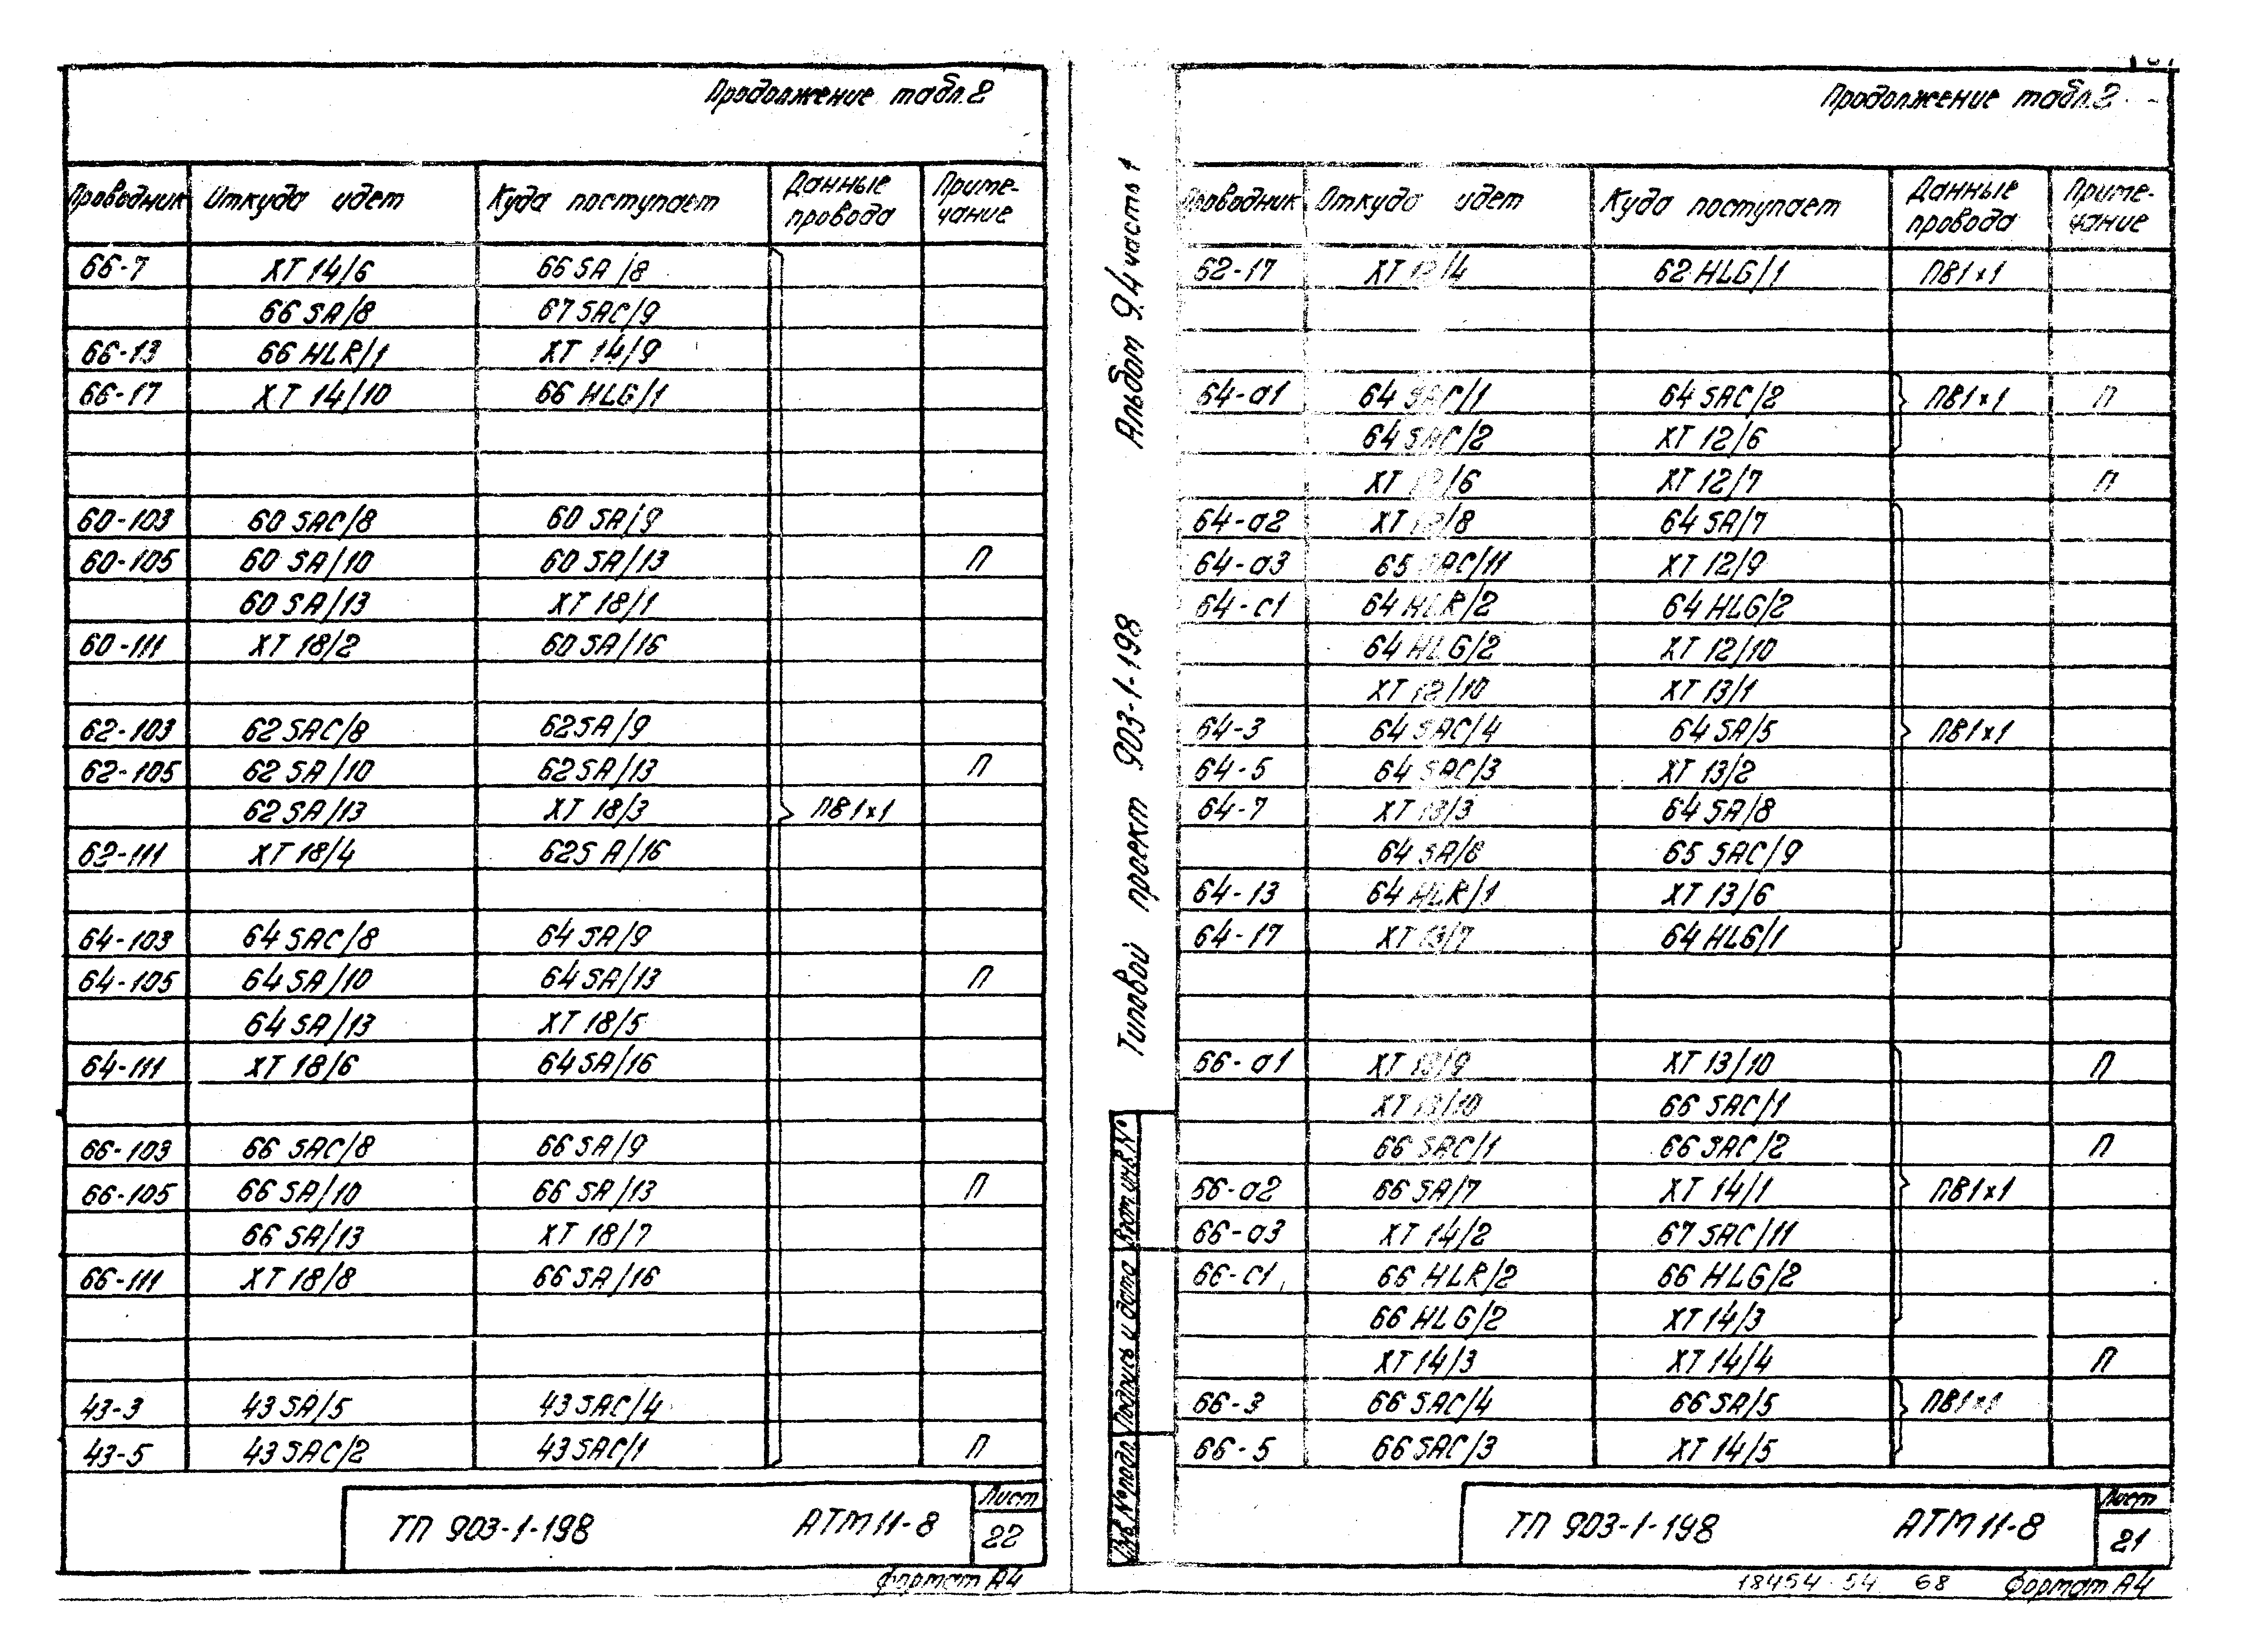 Продолжение табл.2
Проводник Откуда идет Куда поступает Данные провода Примечание
66-7 XT 14/6 66 SA/8
66 SA/8 67 SAC/9
66-13 66 HLR/1 XT 14/9
66-17 XT 14/10 66 HLG/1
60-103 60 SAC/8 60 SA/9
60-105 60 SA/10 60 SA/13 П
60 SA/13 XT 18/1
60-111 XT 18/2 60 SA/16
62-103 62 SAC/8 62SA/9
62-105 62 SA/10 62SA/13 П
62 SA/13 XT 18/3 ПВ1×1
62-111 XT 18/4 62SA/16
64-103 64 SAC/8 64 SA/9
64-105 64 SA/10 64 SA/13 П
64 SA/13 XT 18/5
64-111 XT 18/6 64SA/16
66-103 66 SAC/8 66 SA/9
66-105 66 SA/10 66 SA/13 П
66 SA/13 XT 18/7
66-111 XT 18/8 66 SA/16
43-3 43 SA/5 43 SAC/4
43-5 43 SAC/2 43 SAC/1 П
ТП 903-1-198 АТМ 11-8 Лист 22
Формат А4
Альбом 9.4 часть 1
Типовой проект 903-1-198
Взам.инв.№
Подпись и дата
Инв.№подл.
Продолжение табл.2
Проводник Откуда идет Куда поступает Данные провода Примечание
62-17 XT 12/4 62 HLG/1 ПВ1×1
64-а1 64 SAC/1 64 SAC/2 ПВ1×1 П
64 SAC/2 XT 12/6
XT 12/6 XT 12/7 П
64-а2 XT 12/8 64 SA/7
64-а3 65 SAC/11 XT 12/9
64-с1 64 HLR/2 64 HLG/2
64 HLG/2 XT 12/10
XT 12/10 XT 13/1
64-3 64 SAC/4 64 SA/5 ПВ1×1
64-5 64 SAC/3 XT 13/2
64-7 XT 13/3 64 SA/8
64 SA/8 65 SAC/9
64-13 64 HLR/1 XT 13/6
64-17 XT 13/7 64 HLG/1
66-а1 XT 13/9 XT 13/10 П
XT 13/10 66 SAC/1
66 SAC/1 66 SAC/2 П
66-а2 66 SA/7 XT 14/1 ПВ1×1
66-а3 XT 14/2 67 SAC/11
66-с1 66 HLR/2 66 HLG/2
66 HLG/2 XT 14/3
XT 14/3 XT 14/4 П
66-3 66 SAC/4 66 SA/5 ПВ1×1
66-5 66 SAC/3 XT 14/5
ТП 903-1-198 АТМ 11-8 Лист 21
18454-54 68 Формат А4